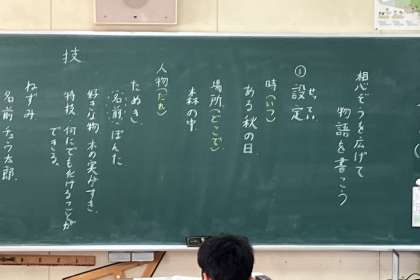 想ぞうを広げて
物語を書こう
① 設定
せってい
時(いつ)
ある秋の日
場所(どこで)
森の中
人物(だれ)
たぬき
名前 ぽんた
好きな物 木の実がすき
特技 何にでもばけることが
できる。
ねずみ
名前 チュウ太郎
技